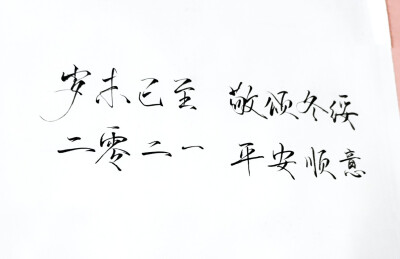 岁末已至 敬颂冬绥
二零二一 平安顺意